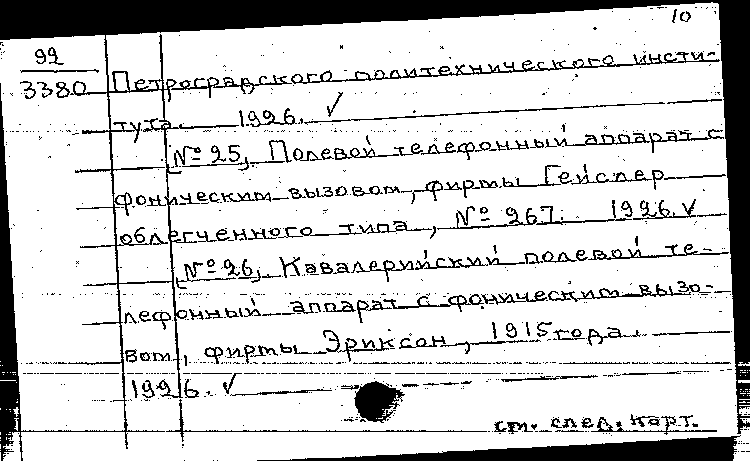 10
99
3380 Петроградского политехнического инсти-
тута. 1926. ✓
[№ 25, Полевой телефонный аппарат с
фоническим вызовом, фирмы Гейслер
облегченного типа, № 267. 1926. ✓
[№ 26, Кавалерийский полевой те-
лефонный аппарат с фоническим вызо-
вом, фирмы Эриксон, 1915 года.
1926. ✓
см. след. карт.